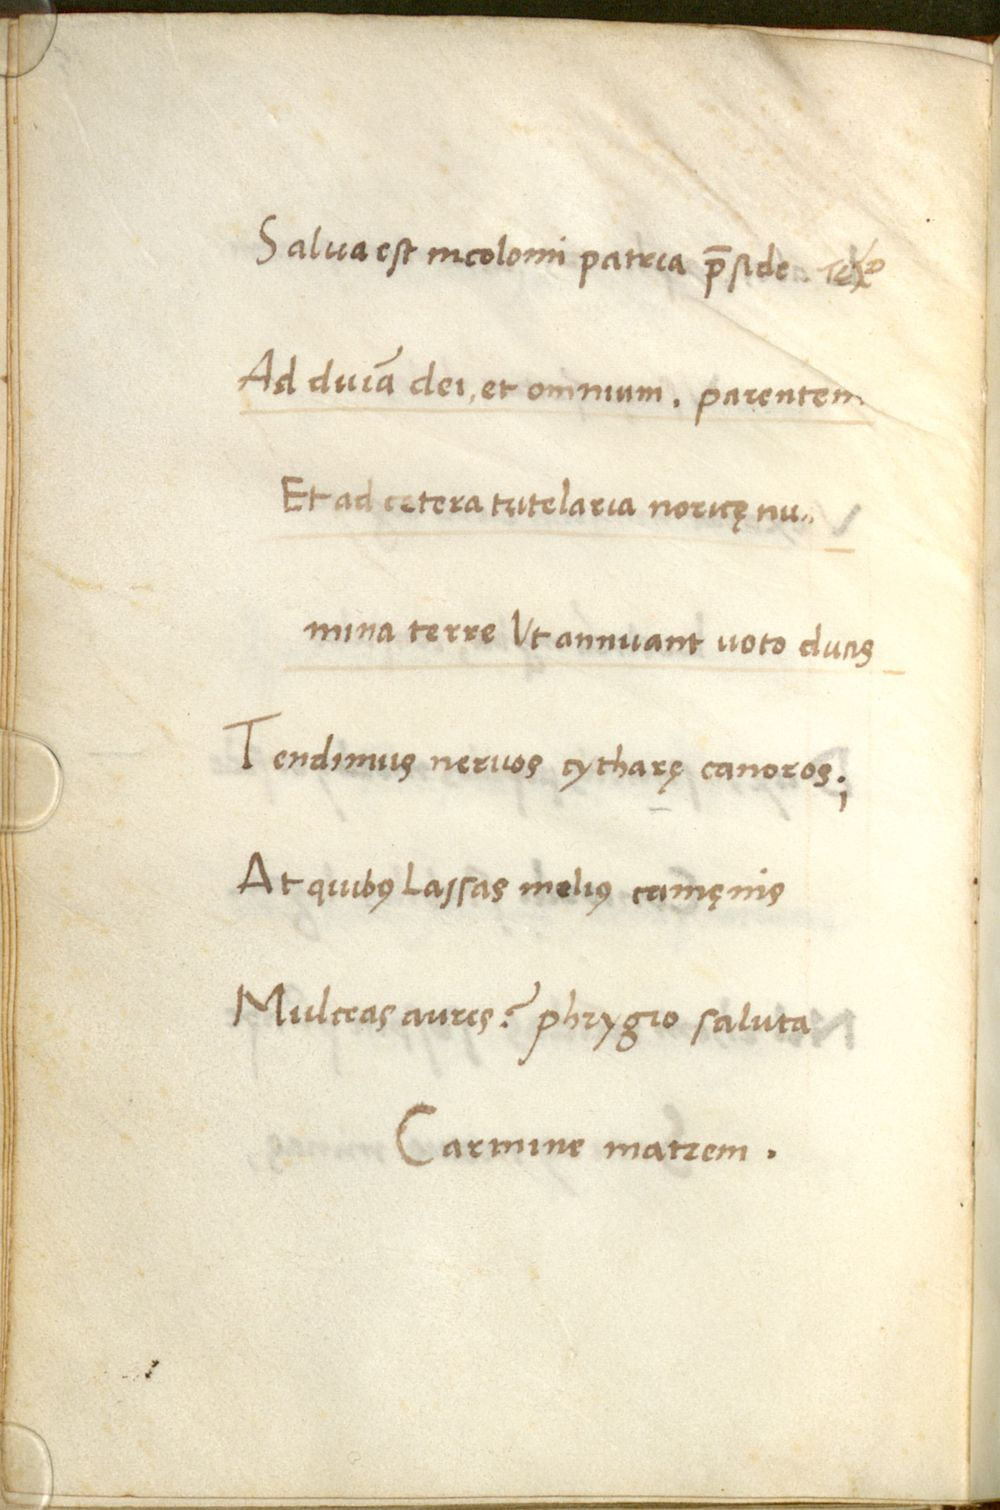 Salua est incolomi patria p̄side . τέλο
Ad diuiā dei, et ominum . parentem
Et ad cetera tutelaria noricę nu„
mina terre Vt annuant uoto duas
Tendimus neruos cytharę canoros ;
At quibꝰ Lassas meliꝰ camęnis
Mulceas aures ? phrygio saluta
Carmine matrem .